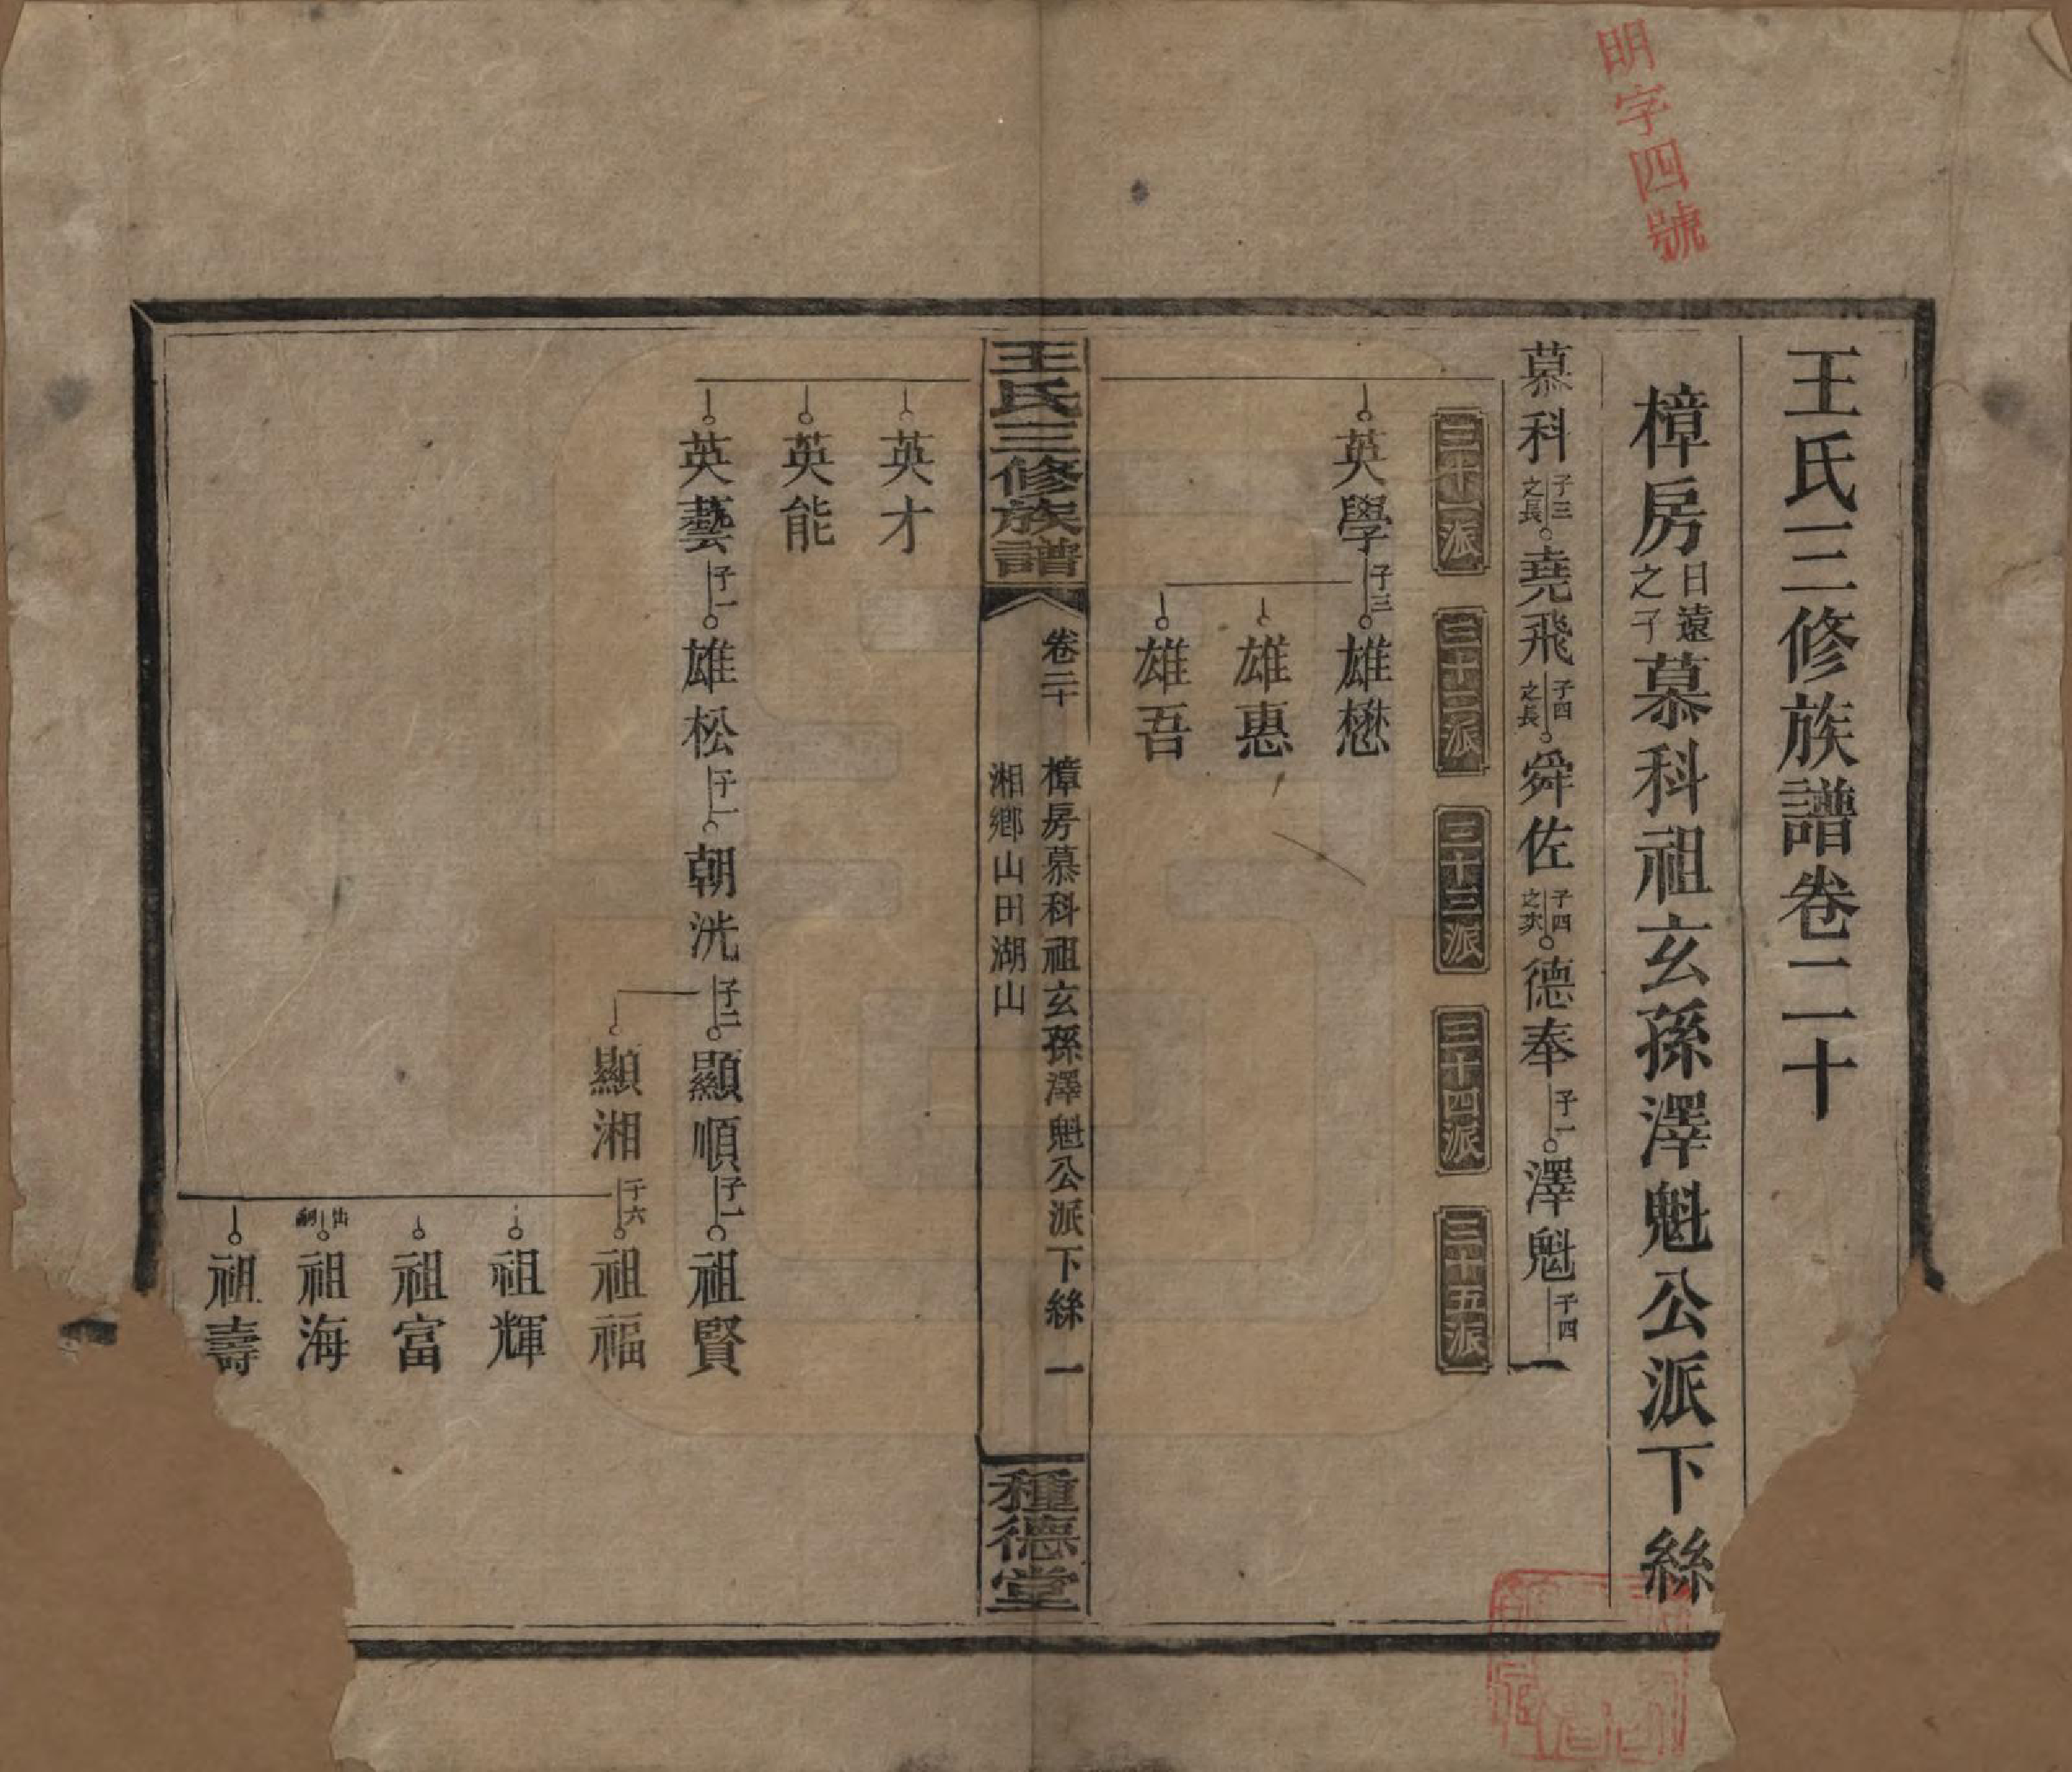 明字四號
王氏三修族譜卷二十
樟房日遠之子慕科祖玄孫澤魁公派下絲
慕科子三之長堯飛子四之長舜佐子四之次德奉子一澤魁子四
三十一派
三十二派
三十三派
三十四派
三十五派
英學子三雄懋
雄惠
雄吾
王氏三修族譜
卷二十
樟房慕科祖玄孫澤魁公派下絲 一
湘鄉山田湖山
種德堂
英才
英能
英藝子一雄松子一朝洸子二顯順子一祖賢
顯湘子六祖福
祖輝
祖富
出嗣祖海
祖壽